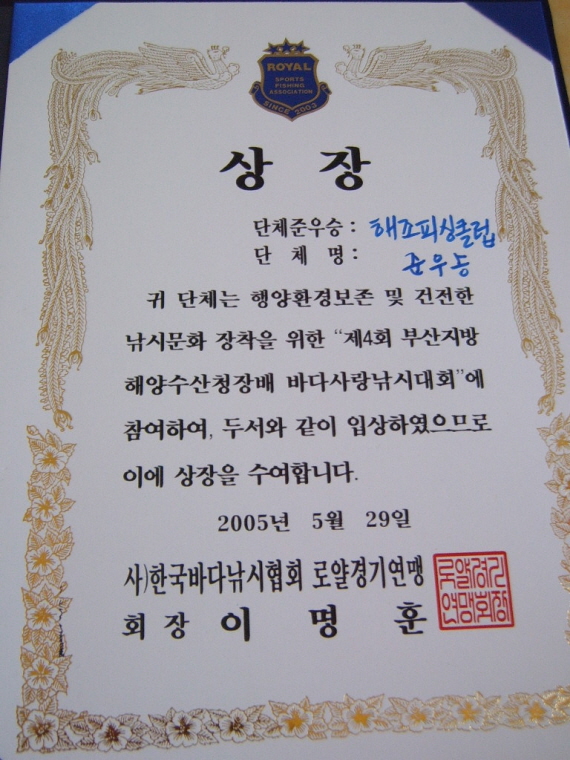 ROYAL
SPORTS
FISHING
ASSOCIATION
SINCE 2003
상 장
단체준우승 : 해조피싱클럽
단 체 명 : 준우승
귀 단체는 행양환경보존 및 건전한
낚시문화 장착을 위한 “제4회 부산지방
해양수산청장배 바다사랑낚시대회”에
참여하여, 두서와 같이 입상하였으므로
이에 상장을 수여합니다.
2005년 5월 29일
사)한국바다낚시협회 로얄경기연맹
회 장 이 명 훈
로얄경기
연맹회장